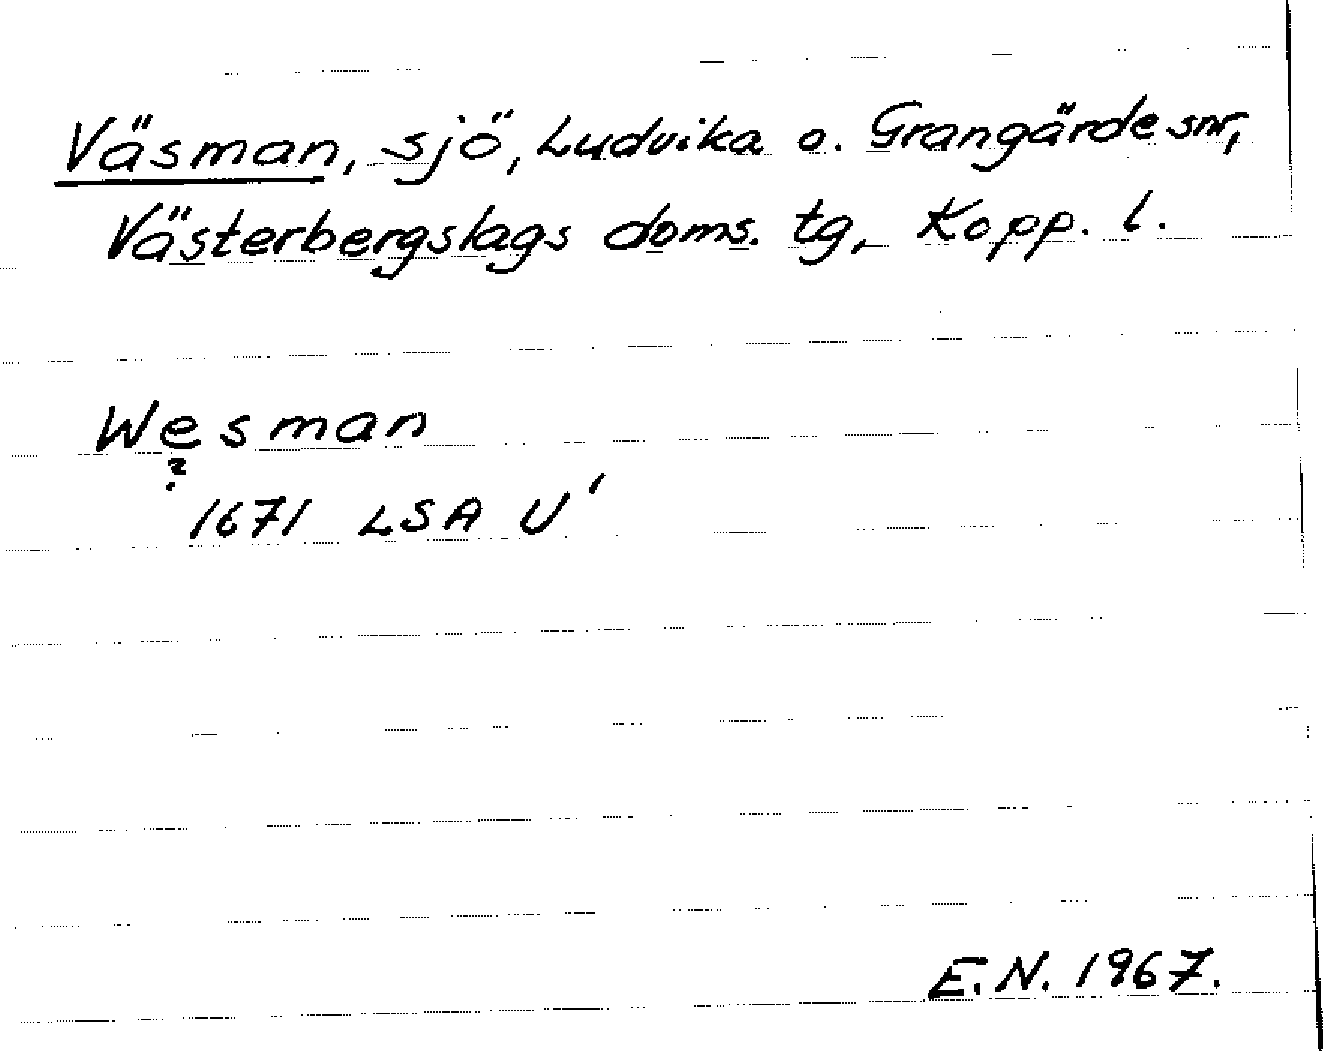 Väsman, sjö, Ludvika o. Grangärde snr,
Västerbergslags doms. tg, Kopp. l.
Wesman
?
1671 LSA U'
E.N. 1967.